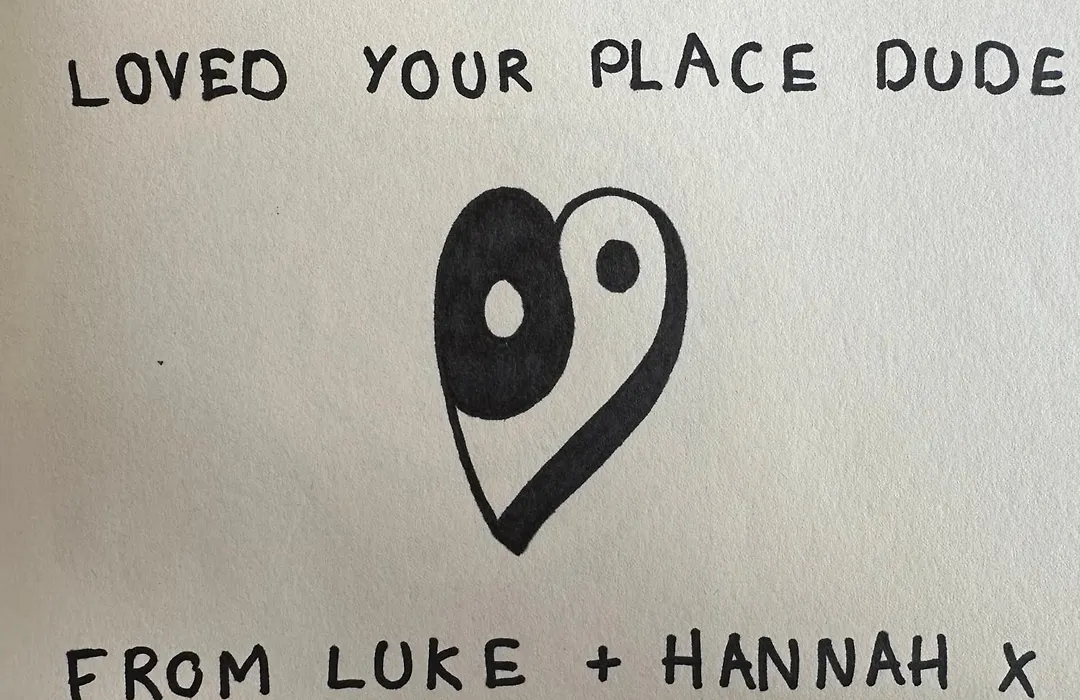 LOVED YOUR PLACE DUDE
FROM LUKE + HANNAH X